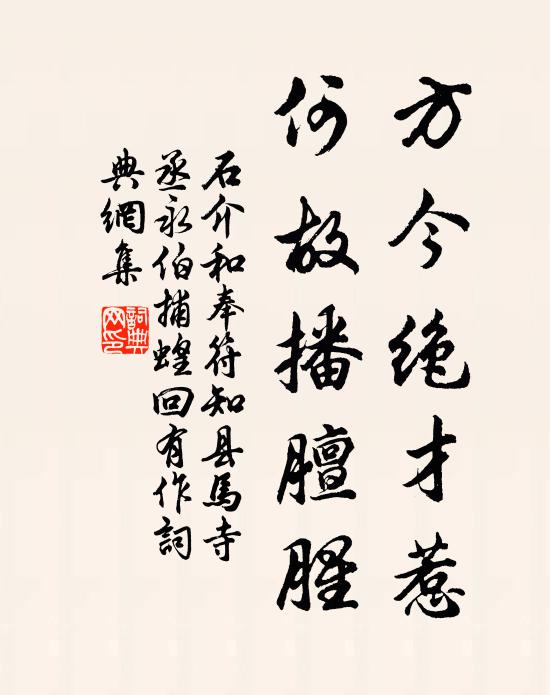 方今绝才惹
何故播膻腥
石介和奉符知县馬寺
丞永伯捕蝗回有作詞
典網集
詞典
网印